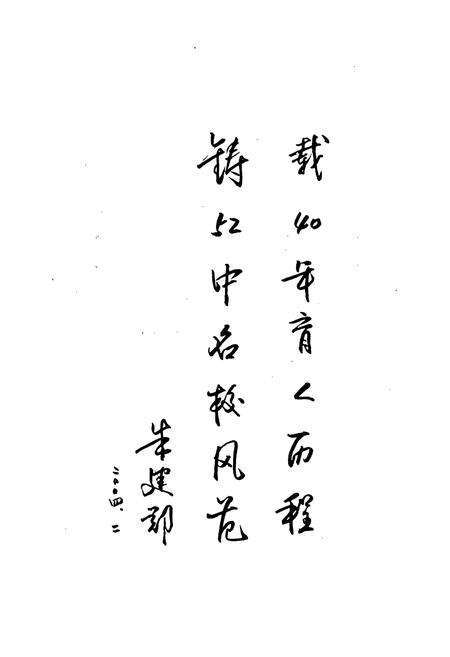 载40年育人历程
铸52中名校风范
朱建
二〇〇四、二